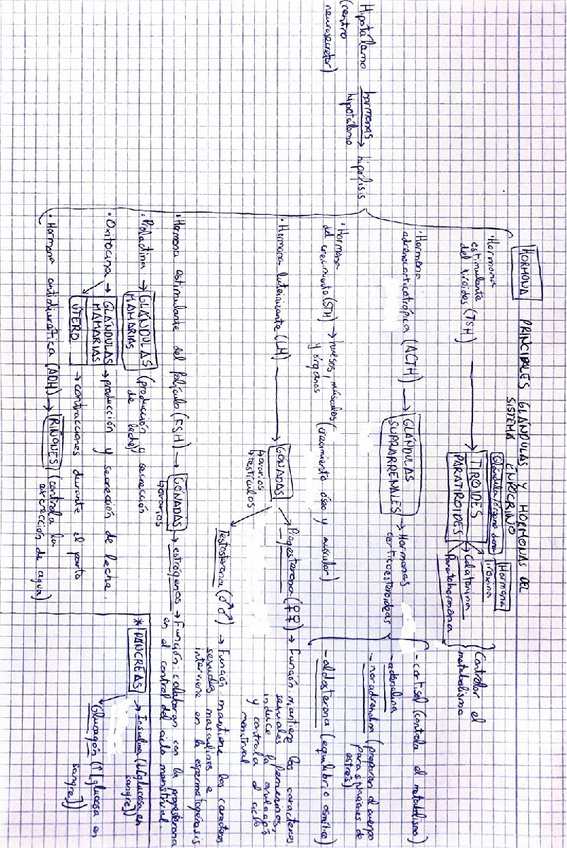 PRINCIPALES GLÁNDULAS Y HORMONAS DEL
SISTEMA ENDOCRINO
HORMONA
Glándula/órgano diana
Hormona
Hipotálamo
(centro
neurosecretor)
hormonas
hipotálamo
hipófisis
· Hormona
estimulante
del tiroides (TSH)
TIROIDES
PARATIROIDES
Tiroxina
Calcitonina
Parathormona
Controlar el
metabolismo
· Hormona
adrenocorticotrópica (ACTH)
GLÁNDULAS
SUPRARRENALES
Hormonas
corticoesteroideas
- cortisol (controla el metabolismo)
- adrenalina
- noradrenalina (preparan el cuerpo
para situaciones de
estrés)
- aldosterona (equilibrio osmótico)
· Hormona
del crecimiento (STH) → huesos, músculos
y órganos
(crecimiento óseo y muscular)
· Hormona luteinizante (LH)
GÓNADAS
ovarios
testículos
Progesterona (♀♀) → Función mantiene los caracteres
sexuales femeninos,
induce la
y controla el ciclo
menstrual
Testosterona (♂♂) → Función mantiene los caracteres
sexuales masculinos e
interviene en la espermatogénesis
· Hormona estimulante del folículo (FSH) → GÓNADAS → estrógenos → Función: colaboran con la progesterona
ovarios
en el control del ciclo menstrual.
· Prolactina → GLÁNDULAS
MAMARIAS
(producción y secreción
de leche)
· Oxitocina → GLÁNDULAS
MAMARIAS
→ producción y secreción de leche.
ÚTERO → contracciones durante el parto
· Hormona antidiurética (ADH) → RIÑONES (controla la
extracción de agua)
* PÁNCREAS → Insulina (↓glucosa en
sangre)
Glucagón (↑[glucosa en
sangre])